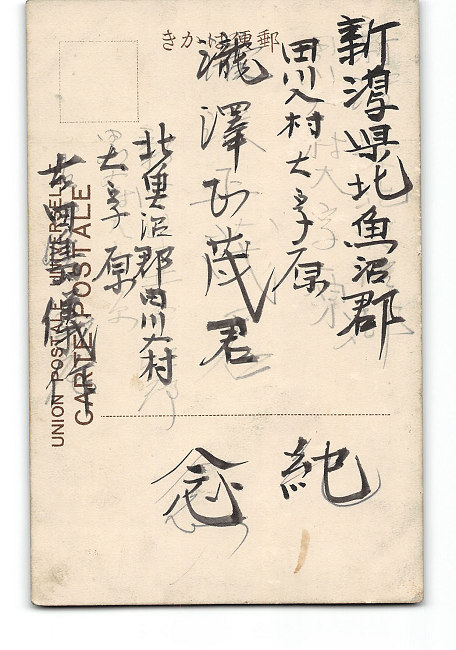 郵便はかき
新潟県北魚沼郡
田川入村大字原
瀧澤
茂君
北奥沼郡田川入村
大字原
儀
純
念
UNION POSTALE UNIVERSELLE
CARTE POSTALE